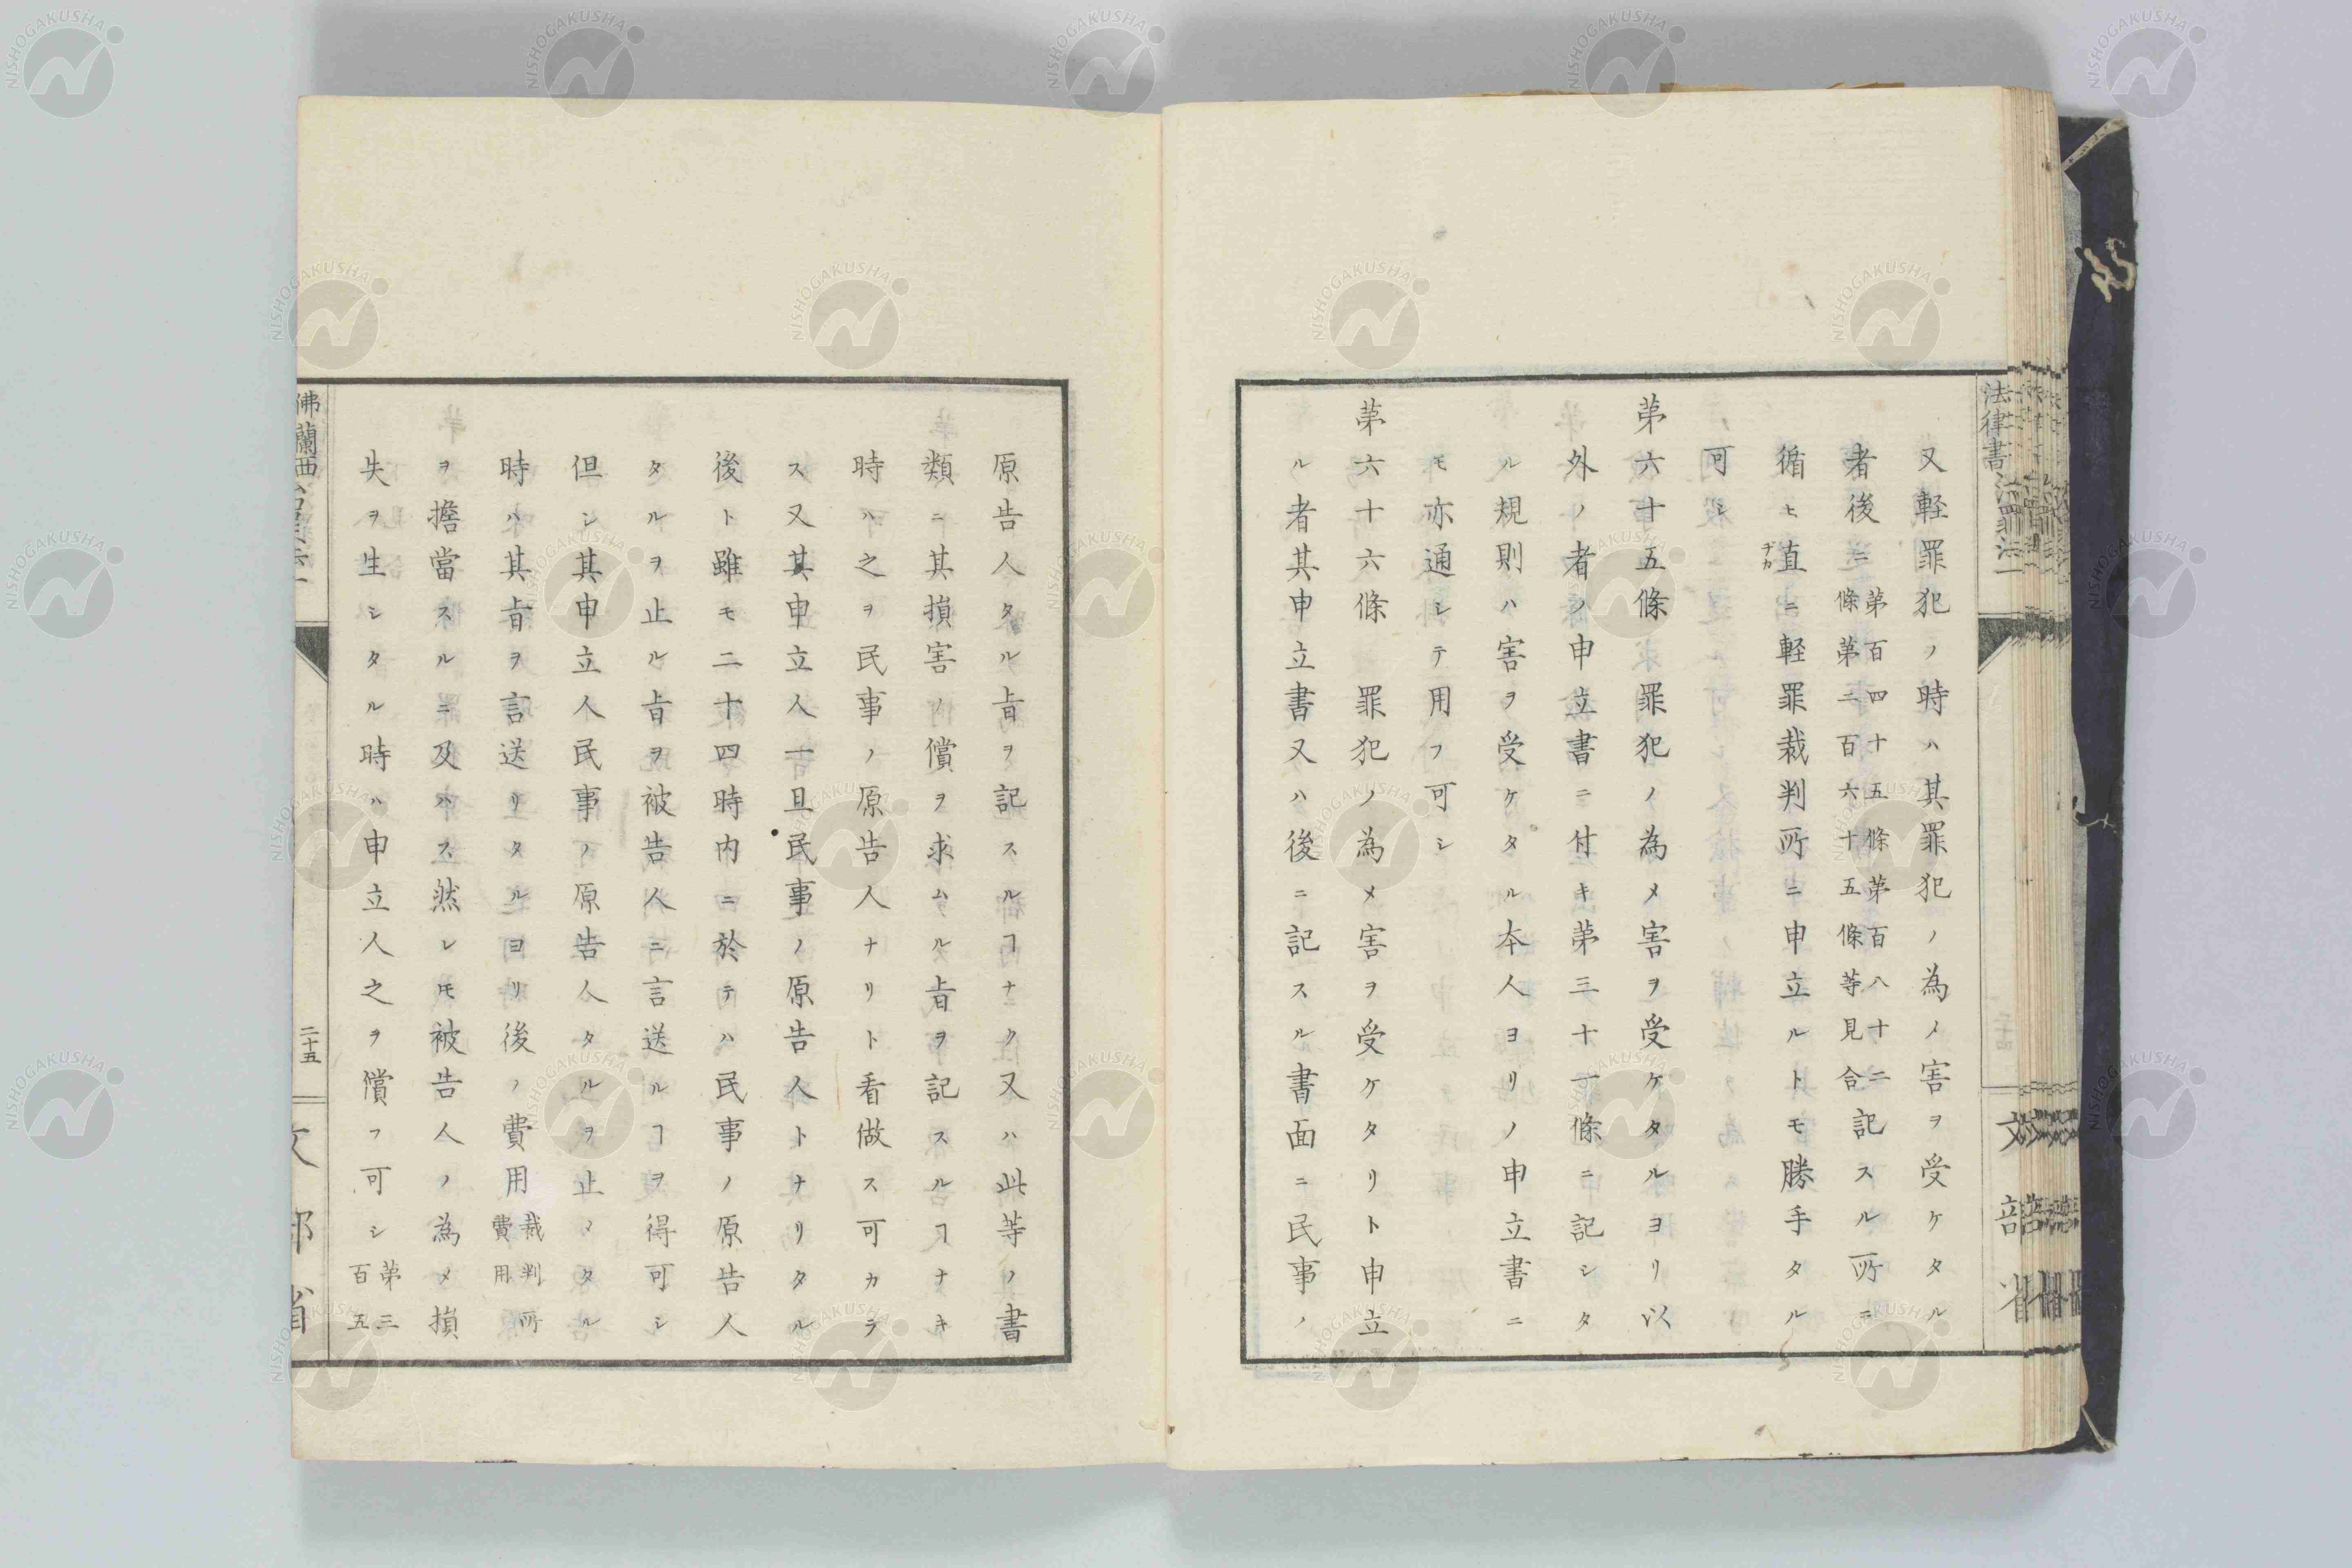 又軽罪犯ノ時ハ其罪犯ノ為メ害ヲ受ケタル
者後ニ第百四十五條第百八十二條第二百六十五條等見合記スル所ニ
循ヒ直ヂカニ軽罪裁判所ニ申立ルトモ勝手タル
可シ
第六十五條 罪犯ノ為メ害ヲ受ケタルヨリ以
外ノ者ノ申立書ニ付キ第三十一條ニ記シタ
ル規則ハ害ヲ受ケタル本人ヨリノ申立書ニ
モ亦通シテ用フ可シ
第六十六條 罪犯ノ為メ害ヲ受ケタリト申立
ル者其申立書又ハ後ニ記スル書面ニ民事ノ
原告人タル旨ヲ記スルヿナク又ハ此等ノ書
類ニ其損害ノ償ヲ求ムル旨ヲ記スルヿナキ
時ハ之ヲ民事ノ原告人ナリト看做ス可カラ
ス又其申立人一旦民事ノ原告人トナリタル
後ト雖モ二十四時内ニ於テハ民事ノ原告人
タルヲ止ル旨ヲ被告人ニ言送ルヿヲ得可シ
但シ其申立人民事ノ原告人タルヲ止メタル
時ハ其旨ヲ言送リタルヨリ後ノ費用裁判所費用
ヲ擔當スルニ及ハス然レ𪜈被告人ノ為メ損
失ヲ生シタル時ハ申立人之ヲ償フ可シ第三百五
法律書
文部省
佛蘭西
二十五
文部省
NISHOGAKUSHA